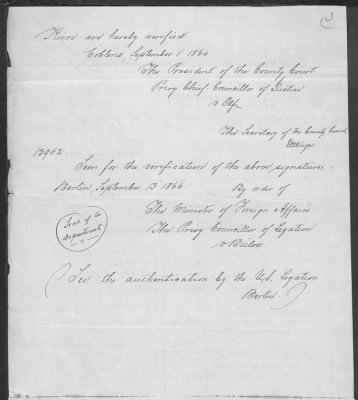 3
are hereby verified.
Coblenz, September 1' 1866
The President of the County Court
Privy Chief Councillor of Justice
v
The Secretary of the County Court
13942.
Seen for the verification of the above signatures.
Berlin, September 13 1866. By order of
The Minister of Foreign Affairs
The Privy Councillor of Legation
v Bülow
Seal of the
Department
(See the authentication by the U.S. Legation
Berlin.)